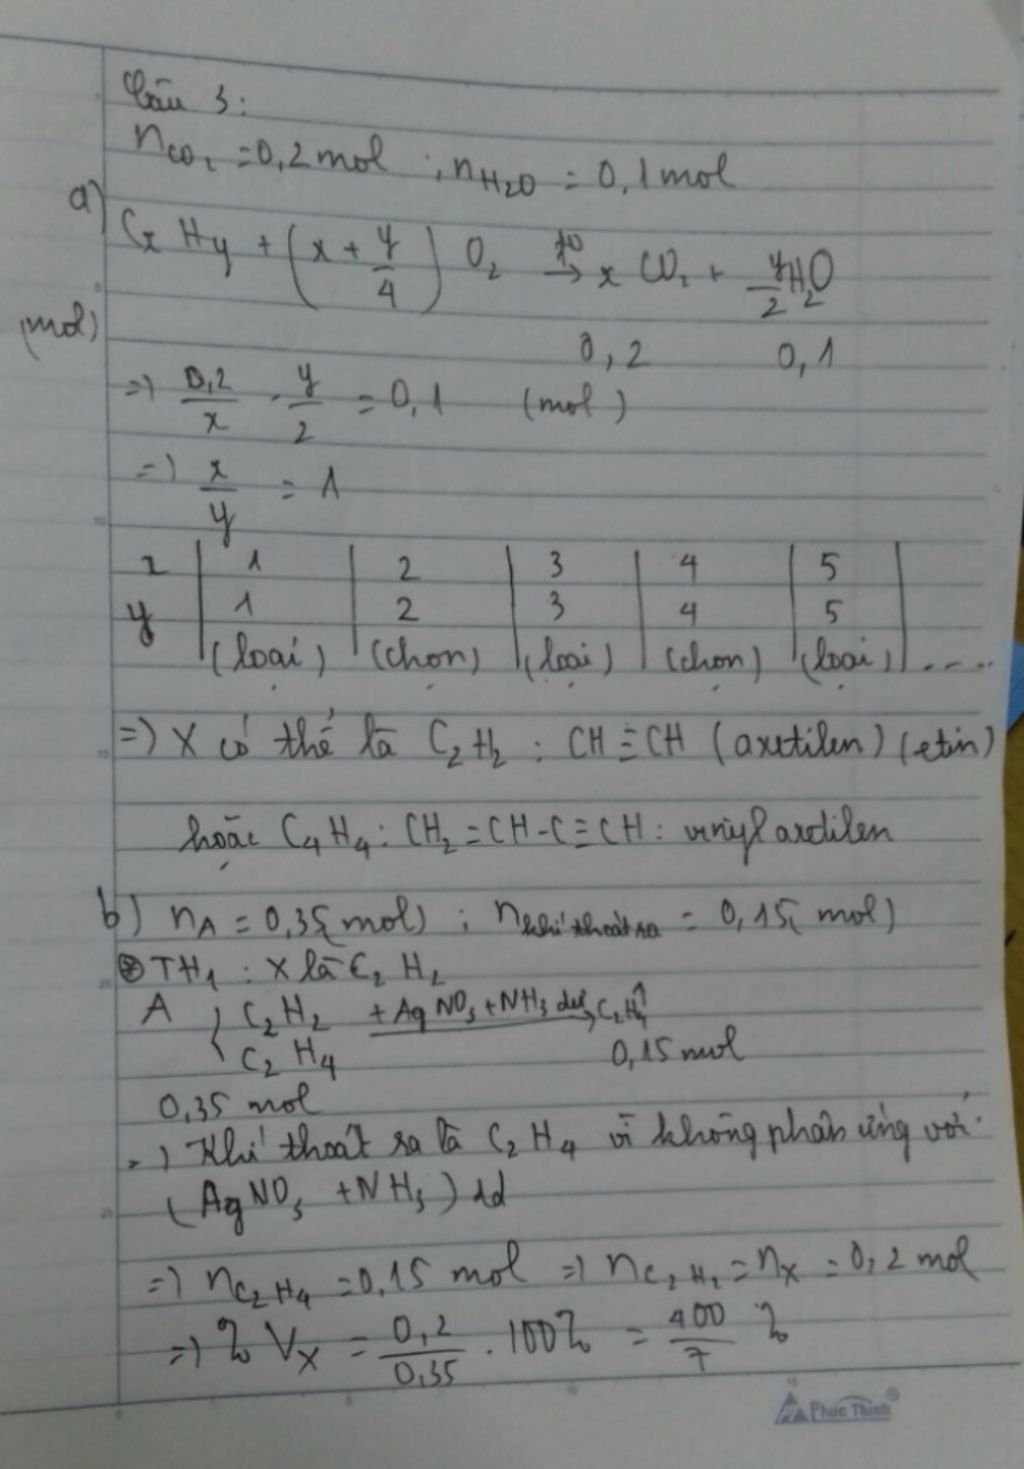 Câu 3:
nCO₂ = 0,2 mol ; nH₂O = 0,1 mol
a) CxHy + (x + y/4) O₂ →t⁰ x CO₂ + y/2 H₂O
(mol) 0,2 0,1
=> 0,2/x . y/2 = 0,1 (mol)
=> x/y = 1
x | 1 | 2 | 3 | 4 | 5 |
y | 1 | 2 | 3 | 4 | 5 |
| (loại) | (chọn) | (loại) | (chọn) | (loại) | ....
=> X có thể là C₂H₂ : CH≡CH (axetilen) (etin)
hoặc C₄H₄ : CH₂=CH-C≡CH : vinyl axetilen
b) nA = 0,35(mol) ; nkhí thoát ra = 0,15(mol)
⊛ TH₁ : X là C₂H₂
A { C₂H₂ +AgNO₃+NH₃ dư → C₂H₄↑
C₂H₄ 0,15 mol
0,35 mol
=> Khí thoát ra là C₂H₄ vì không phản ứng với
(AgNO₃ + NH₃) dd
=> nC₂H₄ = 0,15 mol => nC₂H₂ = nX = 0,2 mol
=> % VX = 0,2/0,35 . 100% = 400/7 %
Phúc Thịnh